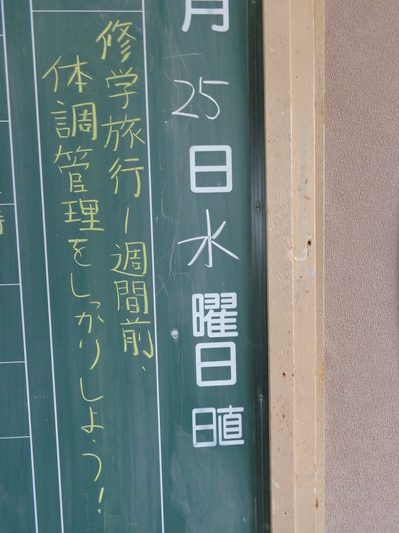 月25日水曜日 日直
修学旅行1週間前、
体調管理をしっかりしよう!